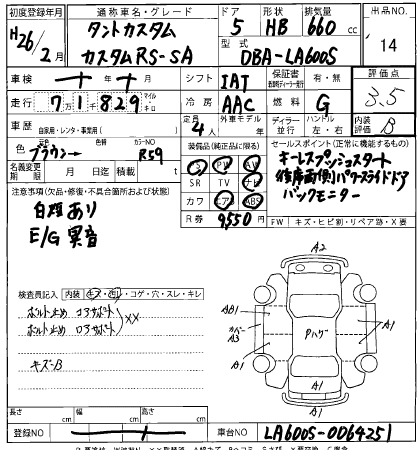 初度登録年月 通称車名・グレード ドア 形状 排気量 出品NO.
H26/2月 タントカスタム カスタムRS-SA 5 HB 660cc 14
型式 DBA-LA600S
車検 年 月 シフト IAT 保証書 有・無 評価点
走行 7 1 829 マイル キロ 冷房 AAC 燃料 G 3.5
車歴 自家用・レンタ・事業用( ) 定員 4人 外車モデル年 ディーラー 並行 ハンドル 左・右 内装評価 B
色 元色 ブラウン→ 色替 カラーNO R59 装備品(純正品に限る) セールスポイント(正常に機能するもの)
名義変更期限 月 日 積載 t
SR TV ナビ
カワ エアB ABS
R券 9,550円
キーレスプッシュスタート
後席両側パワースライドドア
バックモニター
注意事項(欠品・修復・不具合箇所および状態)
白理あり
E/G異音
FW キズ・ヒビ割・リペア跡・X要
検査員記入 内装 キズ・汚れ・コゲ・穴・スレ・キレ
ボルト止め コアサポート XX
キズ-B
A2
AB1
カバーA3
Pハゲ
A1
A1
A1
A1
長さ cm 幅 cm 高さ cm
登録NO 車台NO LA600S-0064251